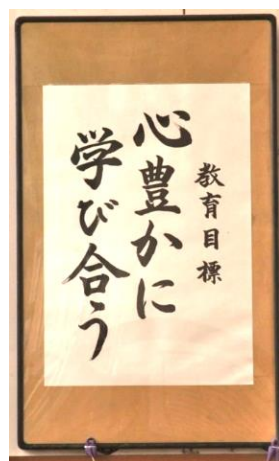 教育目標
心豊かに
学び合う